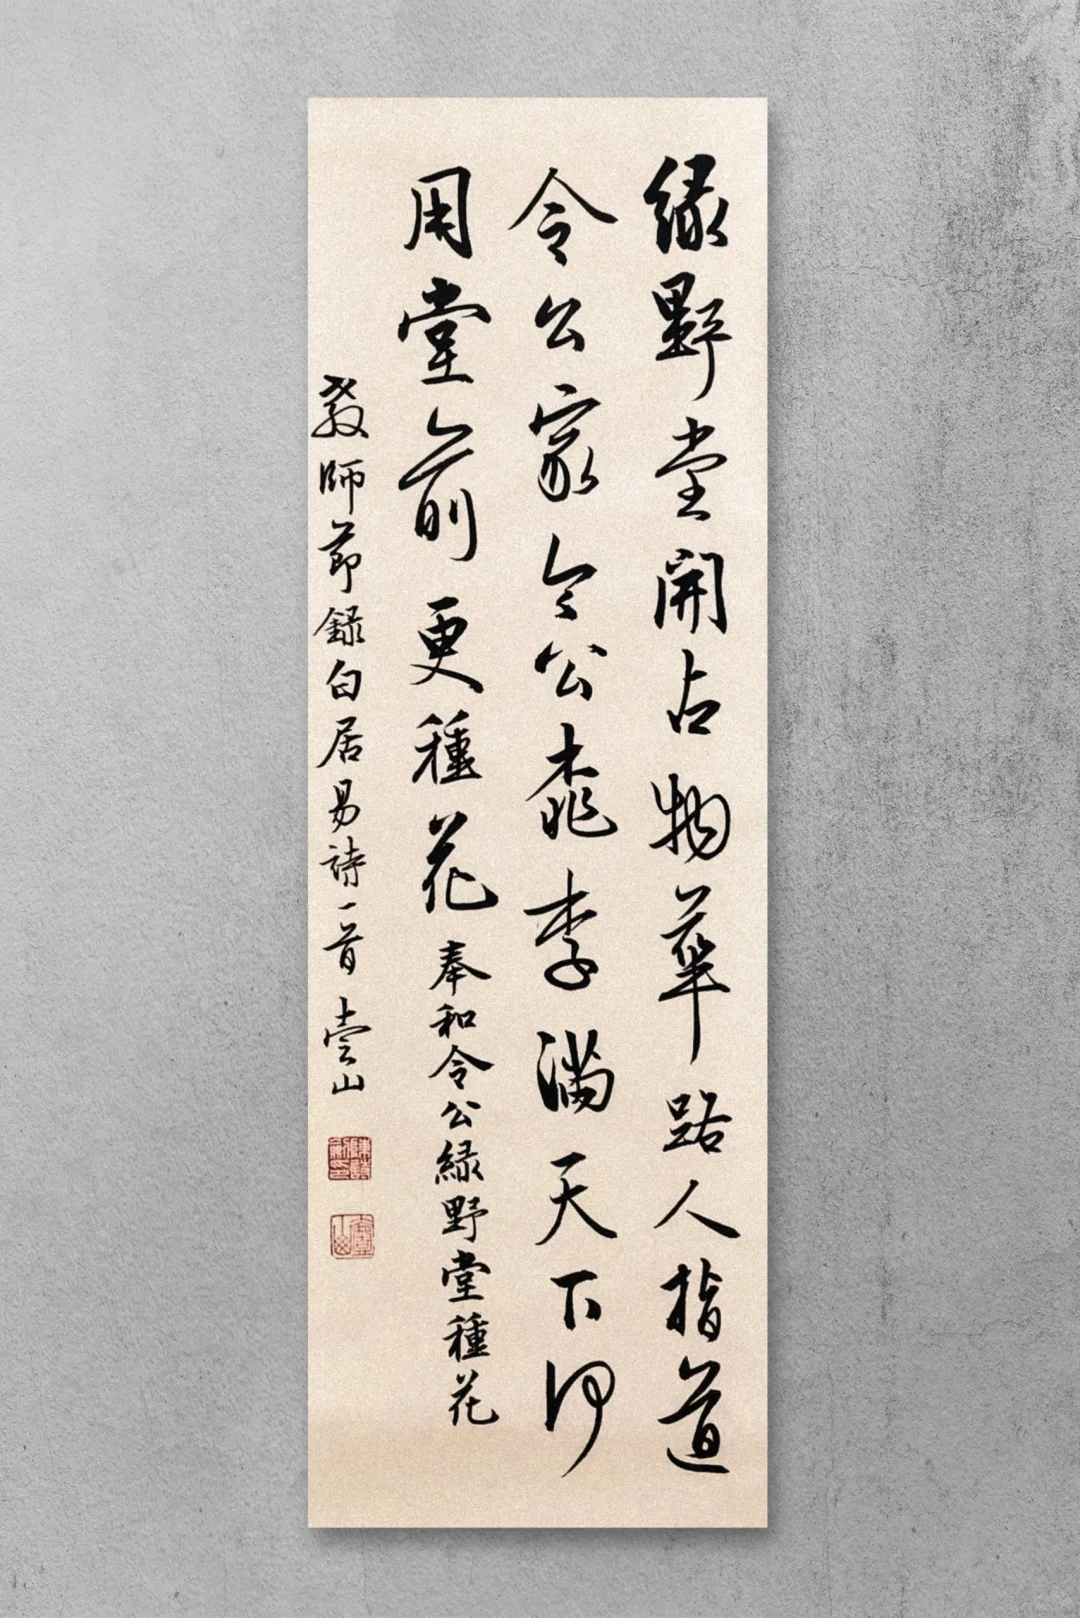 緑野堂開占物華路人指道
令公家令公桃李満天下何
用堂前更種花 奉和令公緑野堂種花
教師節録白居易詩一首 壹山